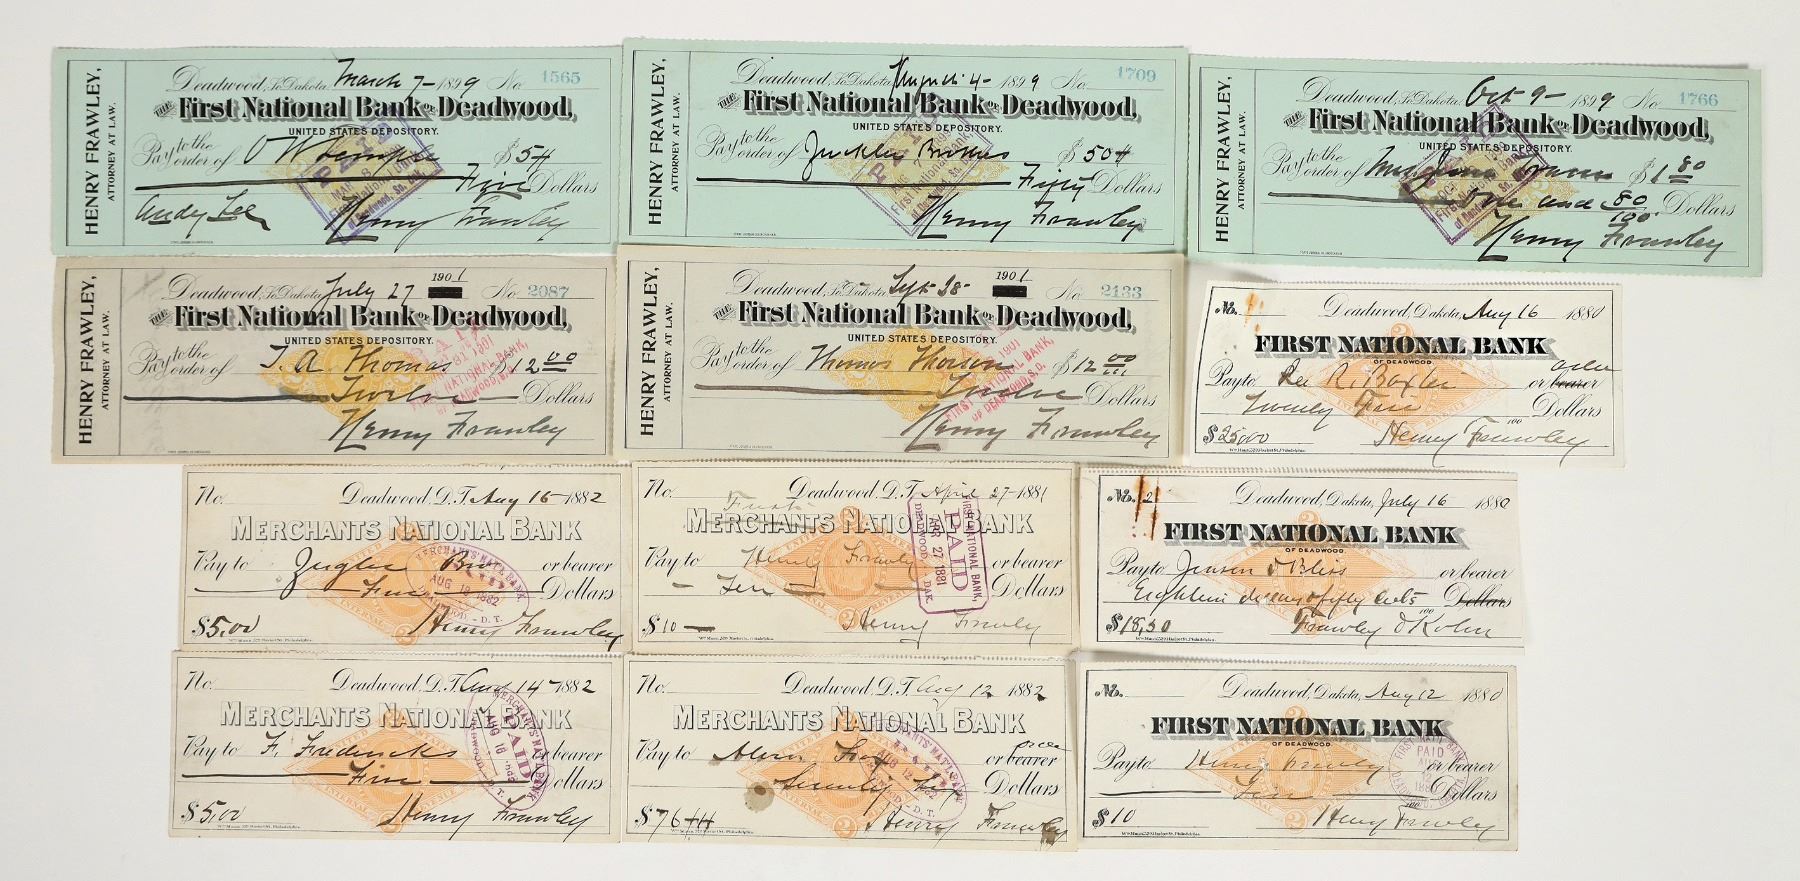 HENRY FRAWLEY,
ATTORNEY AT LAW.
Deadwood, So. Dakota, March 7- 1899 No. 1565
THE First National Bank OF Deadwood,
UNITED STATES DEPOSITORY.
Pay to the order of O W $5
Five Dollars
Andy Lee Henry Frawley
HENRY FRAWLEY,
ATTORNEY AT LAW.
Deadwood, So. Dakota, August 4- 1899 No. 1709
THE First National Bank OF Deadwood,
UNITED STATES DEPOSITORY.
Pay to the order of Brothers $50
Fifty Dollars
Henry Frawley
HENRY FRAWLEY,
ATTORNEY AT LAW.
Deadwood, So. Dakota, Oct 9- 1899 No. 1766
THE First National Bank OF Deadwood,
UNITED STATES DEPOSITORY.
Pay to the order of $1 80
One and 80/100 Dollars
Henry Frawley
HENRY FRAWLEY,
ATTORNEY AT LAW.
Deadwood, So. Dakota, July 27 1901 No. 2087
THE First National Bank OF Deadwood,
UNITED STATES DEPOSITORY.
Pay to the order of T. A. Thomas $12 00
Twelve Dollars
Henry Frawley
HENRY FRAWLEY,
ATTORNEY AT LAW.
Deadwood, So. Dakota, Sept 28- 1901 No. 2133
THE First National Bank OF Deadwood,
UNITED STATES DEPOSITORY.
Pay to the order of Thomas Thorson $12 00
Twelve Dollars
Henry Frawley
FIRST NATIONAL BANK,
OF DEADWOOD, S. D.
No. Deadwood, Dakota, Aug 16 1880
FIRST NATIONAL BANK
OF DEADWOOD.
order
Pay to R. Baxter or bearer
Twenty Five 100 Dollars
$25.00 Henry Frawley
No. Deadwood, D.T. Aug 16- 1882
MERCHANTS NATIONAL BANK
Pay to Bro or bearer
Five Dollars
$5.00 Henry Frawley
MERCHANTS' NAT'L BANK,
AUG 16 1882
No. Deadwood, D.T. April 27- 1881
First
MERCHANTS NATIONAL BANK
Pay to Henry Frawley or bearer
Ten Dollars
$10 Henry Frawley
FIRST NATIONAL BANK,
PAID
APR 27 1881
DEADWOOD, DAK.
No. 2 Deadwood, Dakota, July 16 1880
FIRST NATIONAL BANK
OF DEADWOOD.
Pay to Jensen & Bliss or bearer
Eighteen & fifty cents 100 Dollars
$18.50 Frawley & Kohn
No. Deadwood, D.T. Aug 14- 1882
MERCHANTS NATIONAL BANK
Pay to F. Fredericks or bearer
Five Dollars
$5.00 Henry Frawley
MERCHANTS' NAT'L BANK
PAID
AUG 16 1882
No. Deadwood, D.T. Aug 12 1882
MERCHANTS NATIONAL BANK
Pay to or bearer
Seventy Six Dollars
$76 Henry Frawley
No. Deadwood, Dakota, Aug 12 1880
FIRST NATIONAL BANK
OF DEADWOOD.
Pay to Henry Frawley or bearer
Ten 100 Dollars
$10 Henry Frawley